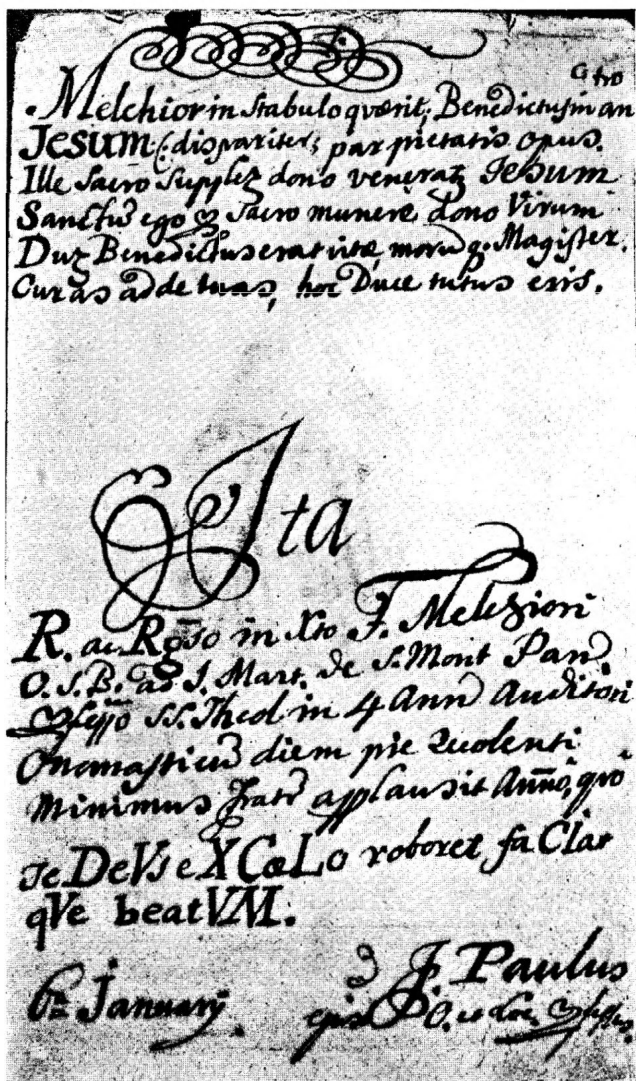 Melchior in stabulo quærit, Benedictus in an
tro
Jesum (: dispariter; par pietatis opus.
Ille sacro supplex dono veneratz Jesum
Sanctus ego & sacro munere dono Virum
Dux Benedictus erat vitæ, morūq. Magister.
Curas adde tuas, hoc Duce tutus eris.
Ita
R. ac Rgso in Xto F. Melchiori
O.S.B. ad S. Mart. de S. Mont Pan
SS. Theol in 4 Ann Auditori
Onomasticū diem pie recolenti
Minimus Frater applausit Anno, quo
Te DeVs e X CœLo roboret, faCIat
qVe beatVM.
6ta January
P. Paulus
ejusd O.